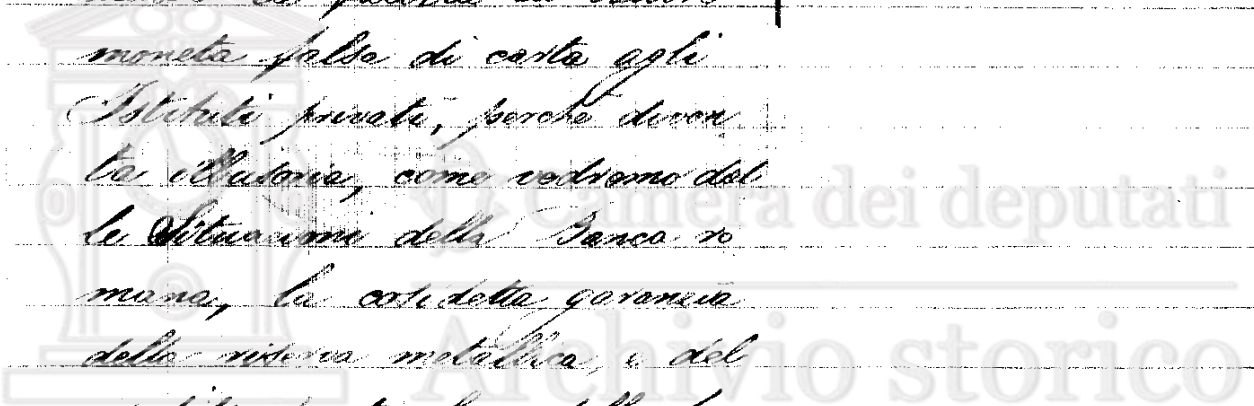 moneta falsa di carta agli
Istituti privati, perchè diven
ta illusoria, come vedremo dal
le Situazioni della Banca ro
mana, la cosidetta garanzia
della riserva metallica, e del
Camera dei deputati
Archivio storico